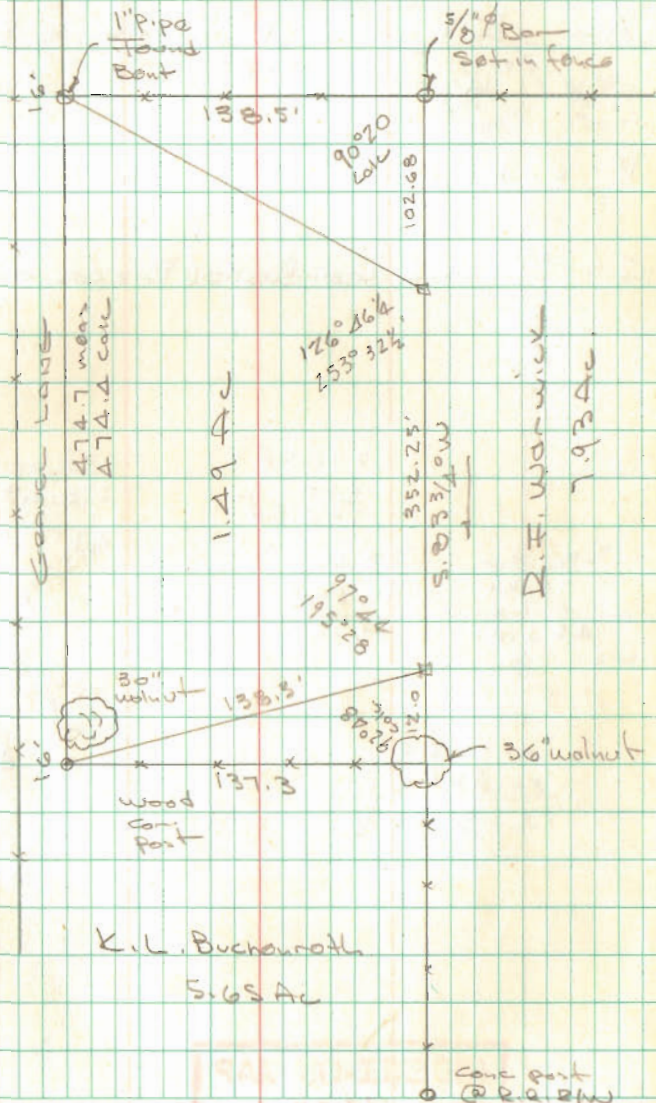 1" Pipe
Found
Bent
5/8" ϕ Bar
Set in fence
16'
138.5'
90°20
calc
102.68
126° 46¼
253° 32½
Gravel Lane
474.7 meas
474.4 calc
1.49 Ac
352.25'
S. 83 3/4° W
D.F. Warwick
7.93 Ac.
97°44
195°28
30"
walnut
138.3'
92°48
calc
12.0
36" walnut
16'
137.3
wood
cor.
post
5.65 Ac
K.L.
conc post
@ R.R. R/W